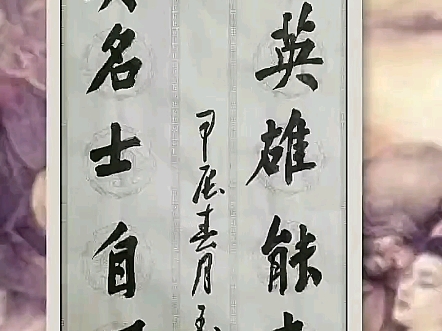 英雄能
甲辰春月
名士自